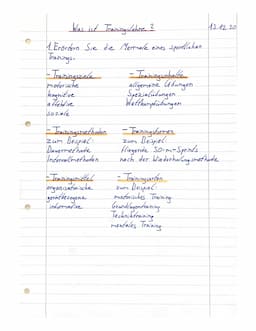 Was ist Trainingslehre? 12.12.20
1. Erörtern Sie die Merkmale eines sportlichen
Trainings.
- Trainingsziele - Trainingsinhalte
motorische allgemeine Übungen
kognitive Spezialübungen
affektive Wettkampfübungen
soziale
- Trainingsmethoden - Trainingsformen
zum Beispiel: zum Beispiel:
Dauermethode fliegende 50-m-Sprints
Intervallmethoden nach der Wiederholungsmethode
- Trainingsmittel - Trainingsarten
organisatorische zum Beispiel:
gerätebezogene motorisches Training
informative Grundlagentraining
Techniktraining
mentales Training